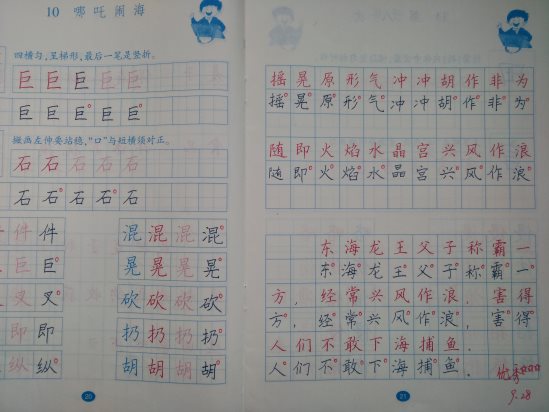 10 哪吒闹海
四横匀,呈梯形,最后一笔是竖折。
巨 巨 巨 巨 巨
巨 巨 巨 巨 巨
撇画左伸要站稳,“口”与短横须对正。
石 石 石 石 石
石 石 石 石 石
件 件
巨 巨
叉 叉
即 即
纵 纵
混 混 混 混
晃 晃 晃 晃
砍 砍 砍 砍
扔 扔 扔 扔
胡 胡 胡 胡
20
摇晃 原形 气冲冲 胡作非为
摇晃 原形 气冲冲 胡作非为
随即 火焰 水晶宫 兴风作浪
随即 火焰 水晶宫 兴风作浪
东海龙王父子称霸一
东海龙王父子称霸一
方,经常兴风作浪,害得
方,经常兴风作浪,害得
人们不敢下海捕鱼。
人们不敢下海捕鱼。
优秀☆☆☆☆
9.28
21